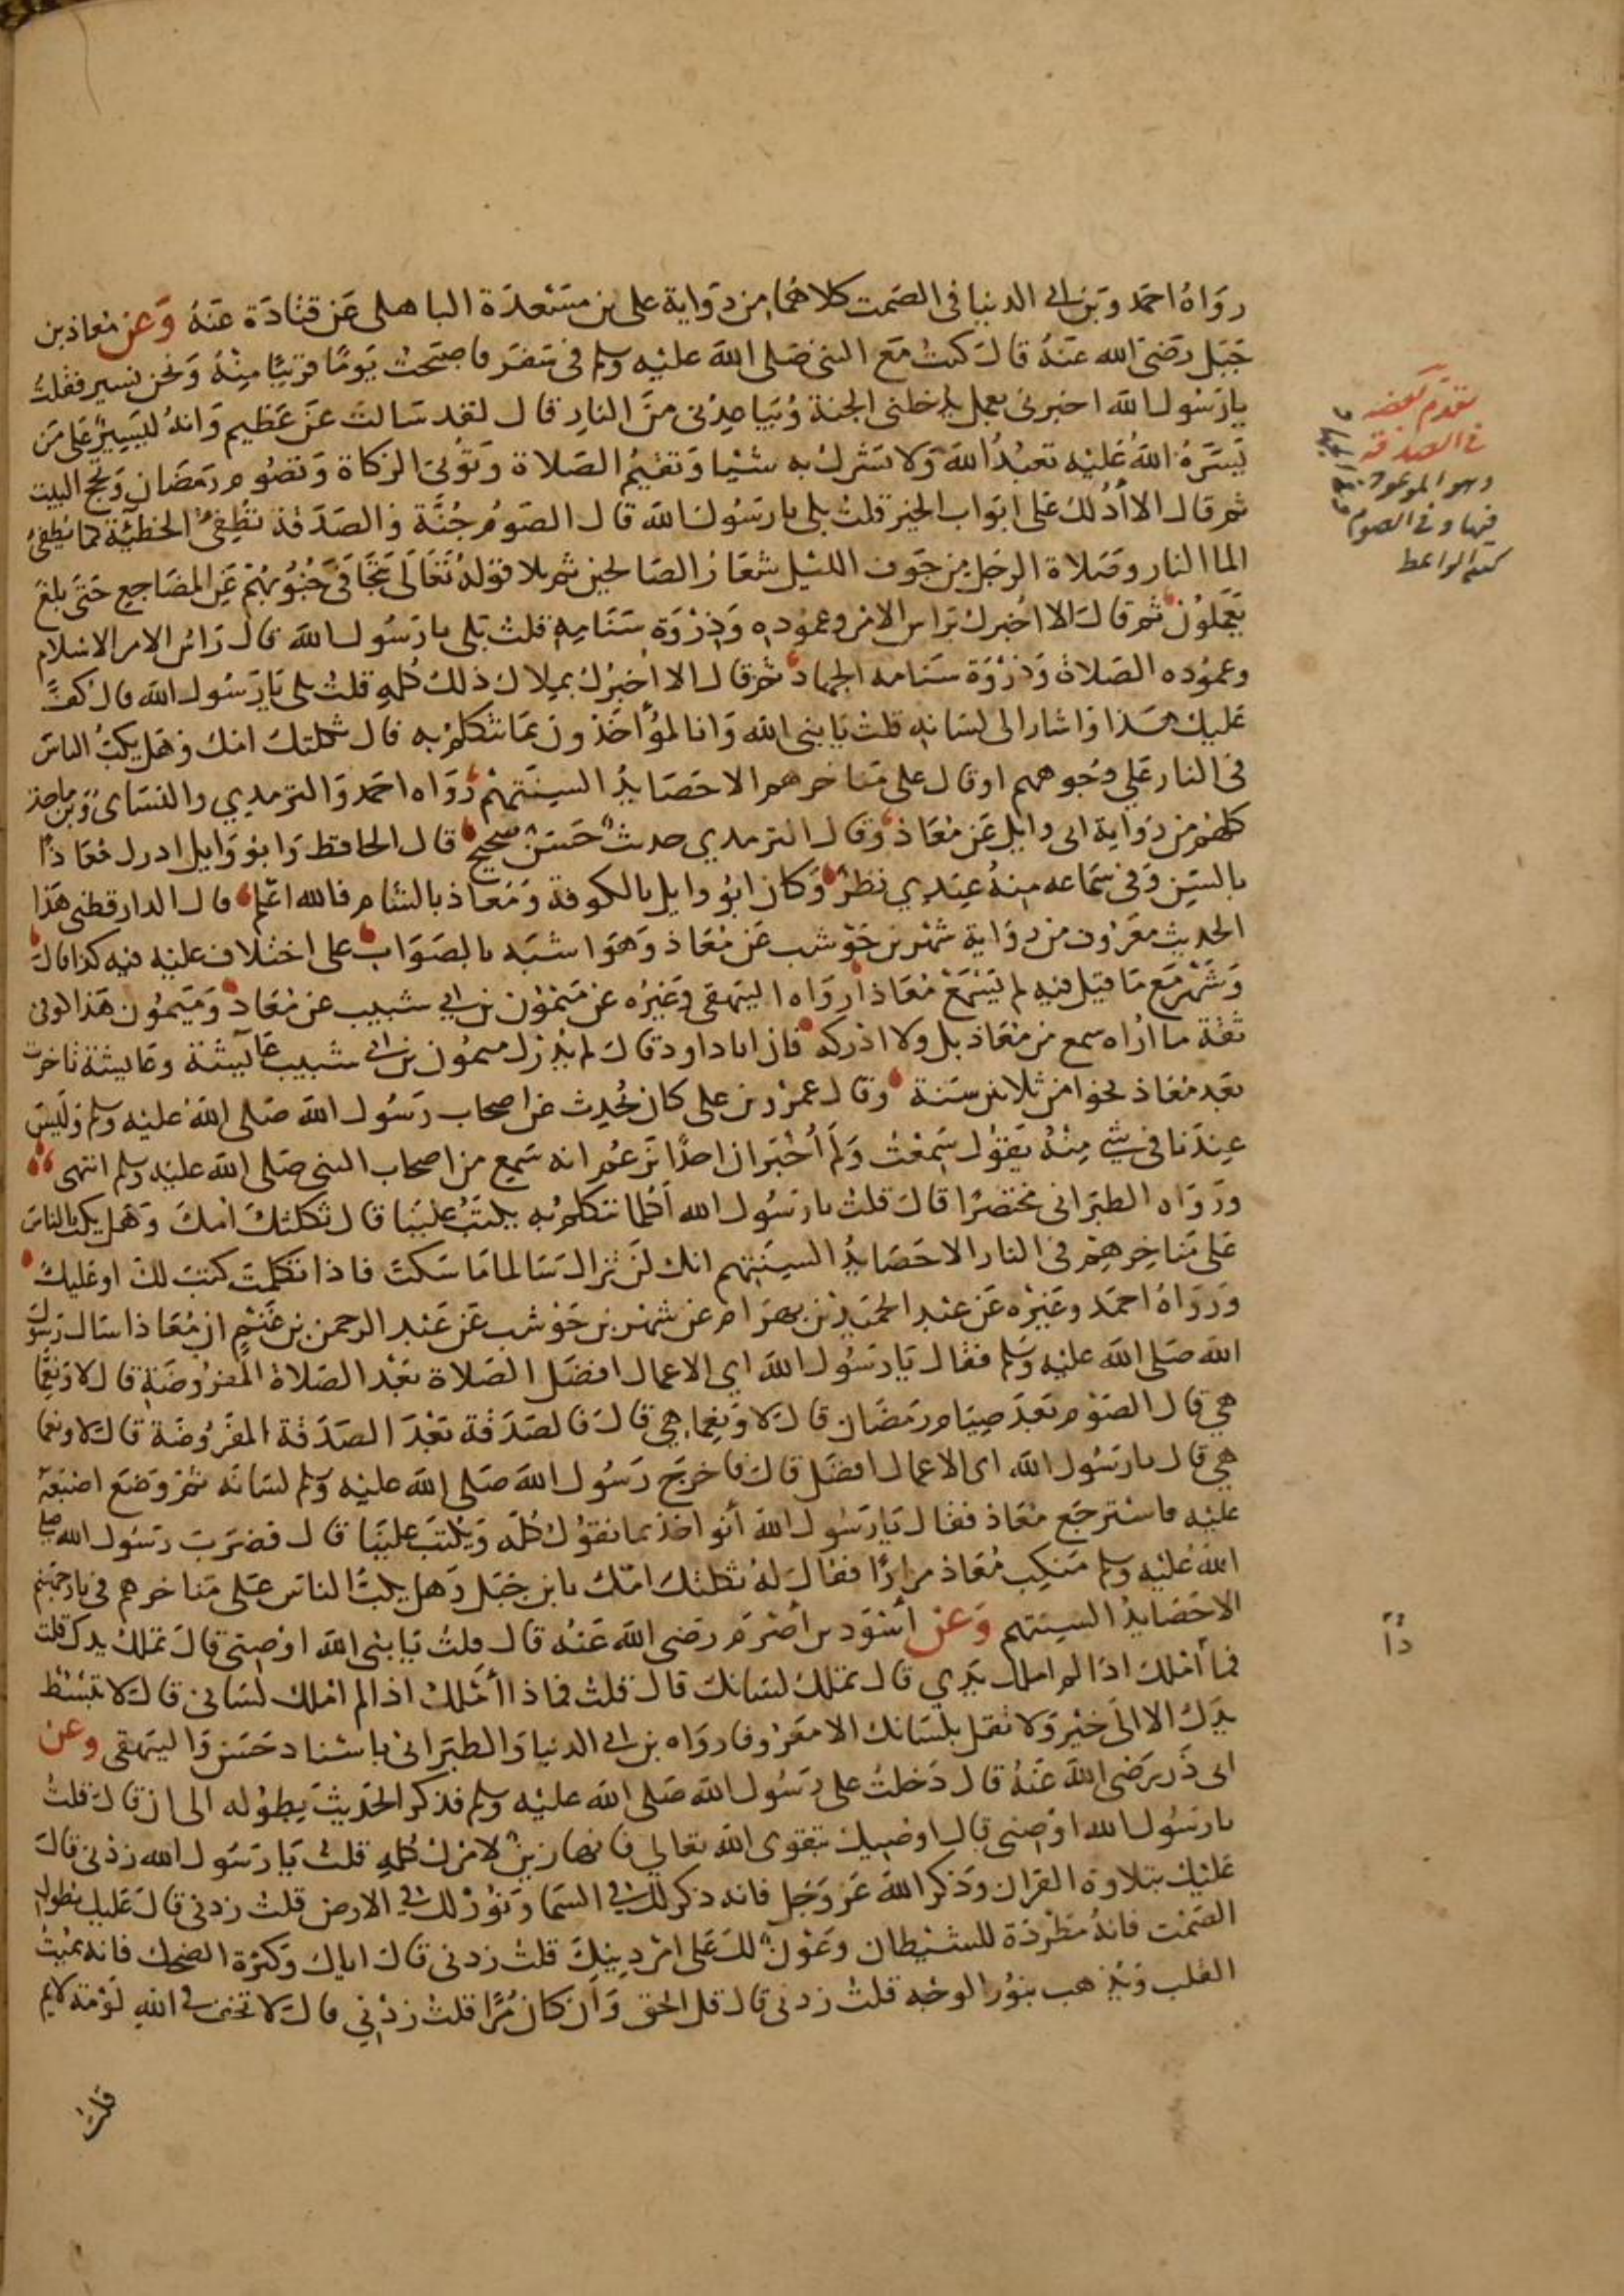 رواه احمد وبن ابي الدنيا في الصمت كلاهما من رواية علي بن مسعدة الباهلي عن قتادة عنه وعن معاذ بن
جبل رضي الله عنه قال كنت مع النبي صلى الله عليه وسلم في سفر فاصبحت يوما قريبا منه ونحن نسير فقلت
يا رسول الله اخبرني بعمل يدخلني الجنة ويباعدني من النار قال لقد سالت عن عظيم وانه ليسير على من
يسره الله عليه تعبد الله ولا تشرك به شيئا وتقيم الصلاة وتؤتي الزكاة وتصوم رمضان وتحج البيت
ثم قال الا أدلك على ابواب الخير قلت بلى يا رسول الله قال الصوم جنة والصدقة تطفئ الخطيئة كما يطفئ
الما النار وصلاة الرجل من جوف الليل شعار الصالحين ثم تلا قوله تعالى تتجافى جنوبهم عن المضاجع حتى بلغ
يعملون ثم قال الا اخبرك براس الامر وعموده وذروة سنامه قلت بلى يا رسول الله قال راس الامر الاسلام
وعموده الصلاة وذروة سنامه الجهاد ثم قال الا اخبرك بملاك ذلك كله قلت بلى يا رسول الله قال كف
عليك هذا واشار الى لسانه قلت يا نبي الله وانا لمؤاخذون بما نتكلم به قال ثكلتك امك وهل يكب الناس
في النار على وجوههم او قال على مناخرهم الا حصايد السنتهم رواه احمد والترمدي والنساي وبن ماجة
كلهم من رواية ابي وايل عن معاذ وقال الترمدي حديث حسن صحيح قال الحافظ وابو وايل ادرك معاذا
بالسن وفي سماعه منه عندي نظر وكان ابو وايل بالكوفة ومعاذ بالشام فالله اعلم قال الدارقطني هذا
الحديث معروف من رواية شهر بن حوشب عن معاذ وهو اشبه بالصواب على اختلاف عليه فيه كذا قال
وشهر مع ما قيل فيه لم يسمع معاذا رواه البيهقي وغيره عن ميمون بن ابي شبيب عن معاذ وميمون هذا كوفي
ثقة ما اراه سمع من معاذ بل ولا ادركه فان ابا داود قال لم يدرك ميمون بن ابي شبيب عائشة وعايشة تاخرت
بعد معاذ نحوا من ثلاثين سنة وقال عمرو بن علي كان يحدث عن اصحاب رسول الله صلى الله عليه وسلم وليس
عندنا في شي منه يقول سمعت ولم أخبر ان احدا يزعم انه سمع من اصحاب النبي صلى الله عليه وسلم انتهى
ورواه الطبراني مختصرا قال قلت يا رسول الله أكلما نتكلم به يكتب علينا قال ثكلتك امك وهل يكب الناس
على مناخرهم في النار الا حصايد السنتهم انك لن تزال سالما ما سكت فاذا تكلمت كتب لك او عليك
ورواه احمد وغيره عن عبد الحميد بن بهرام عن شهر بن حوشب عن عبد الرحمن بن غنم ان معاذا سال رسول
الله صلى الله عليه وسلم فقال يا رسول الله اي الاعمال افضل الصلاة بعد الصلاة المفروضة قال لا ونعما
هي قال الصوم بعد صيام رمضان قال لا ونعما هي قال فالصدقة بعد الصدقة المفروضة قال لا ونعما
هي قال يا رسول الله اي الاعمال افضل قال فاخرج رسول الله صلى الله عليه وسلم لسانه ثم وضع اصبعه
عليه فاسترجع معاذ فقال يا رسول الله أنواخذ بما نقول كله ويكتب علينا قال فضرب رسول الله صلى
الله عليه وسلم منكب معاذ مرارا فقال له ثكلتك امك يا بن جبل وهل يكب الناس على مناخرهم في نار جهنم
الا حصايد السنتهم وعن أسود بن أصرم رضي الله عنه قال قلت يا نبي الله اوصني قال تملك يدك قلت
فما أملك اذا لم املك يدي قال تملك لسانك قال قلت فماذا أملك اذا لم املك لساني قال لا تبسط
يدك الا الى خير ولا تقل بلسانك الا معروفا رواه بن ابي الدنيا والطبراني باسناد حسن والبيهقي وعن
ابي ذر رضي الله عنه قال دخلت على رسول الله صلى الله عليه وسلم فذكر الحديث بطوله الى ان قال قلت
يا رسول الله اوصني قال اوصيك بتقوى الله تعالى فانها زين لامرك كله قلت يا رسول الله زدني قال
عليك بتلاوة القران وذكر الله عز وجل فانه ذكر لك في السما ونور لك في الارض قلت زدني قال عليك بطول
الصمت فانه مطردة للشيطان وعون لك على امر دينك قلت زدني قال اياك وكثرة الضحك فانه يميت
القلب ويذهب بنور الوجه قلت زدني قال قل الحق وان كان مرا قلت زدني قال لا تخف في الله لومة لايم
قلت
تقدم بعضه
في الصدقة
وهو الموعود
فيها وفي الصوم
دًا